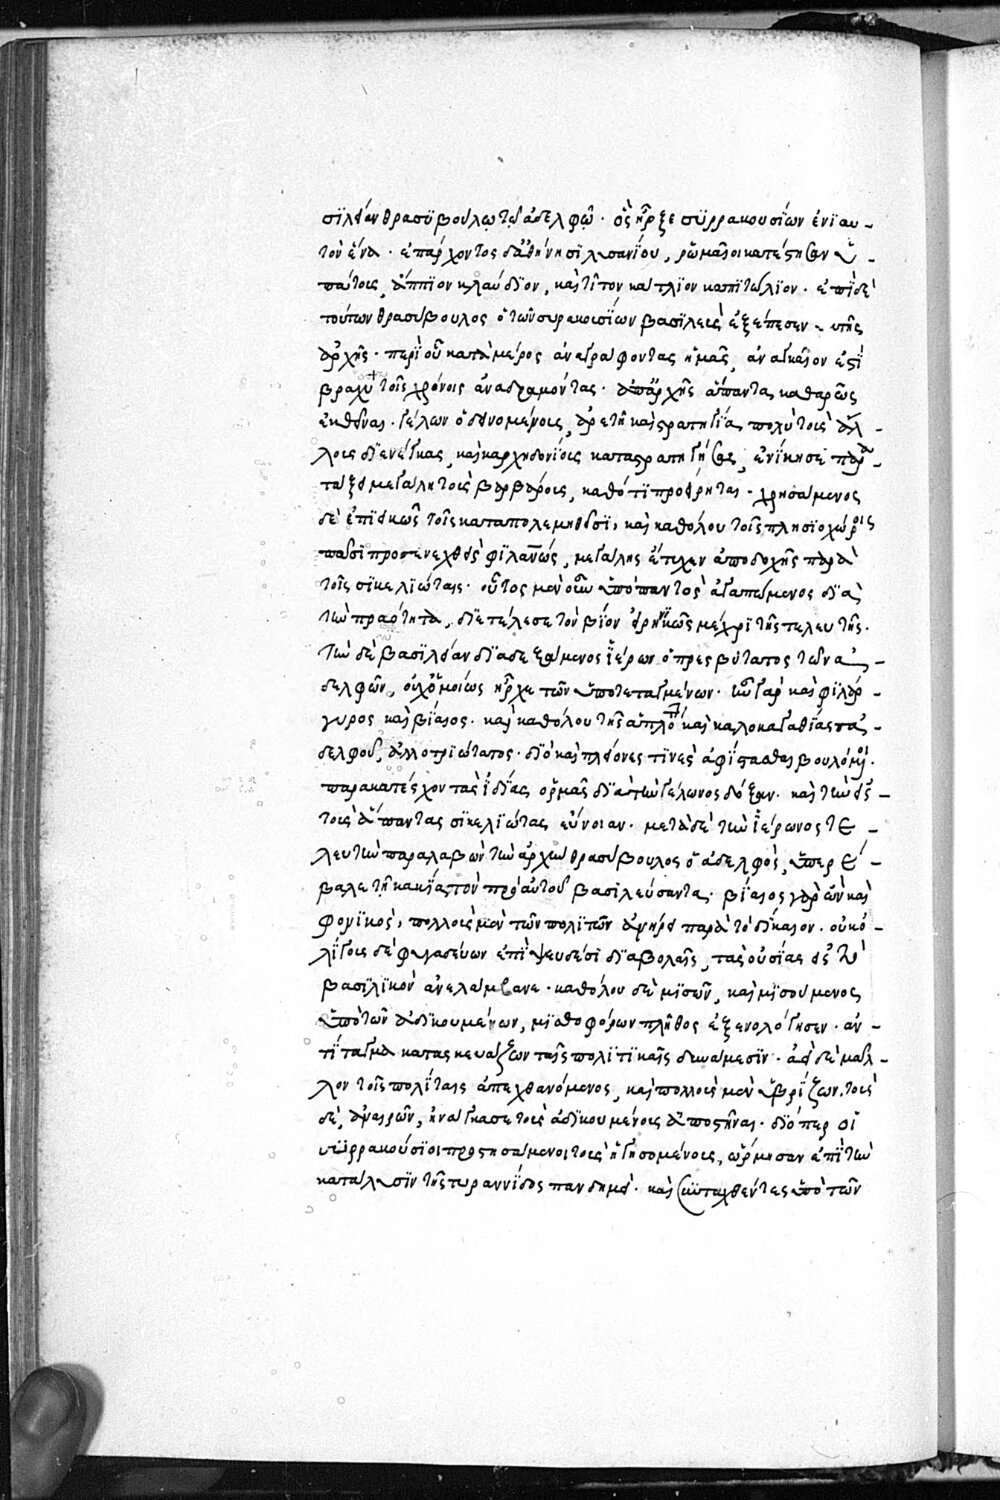 σϊλείαν θρασϋβούλῳ τῷ ἀδελφῷ· ὃς ἦρξε συρρακουσίων ἐνϊαυ-
τὸν ἕνα· ἐπ' ἄρχοντος δ' ἀθήνησι λυσανίου, ῥωμαῖοι κατέστησαν ὑ-
πάτους, ἄππϊον κλαύδϊον, καὶ τίτον κοΐντϊον καπϊτώλϊον· ἐπὶ δὲ
τούτων θρασύβουλος ὁ τῶν συρακουσίων βασϊλεὺς ἐξέπεσεν τῆς
ἀρχῆς· περὶ οὗ κατὰ μέρος ἀναγράφοντας ἡμᾶς, ἀναγκαῖον ἐστὶ
βραχὺ τοῖς χρόνοις ἀναδραμόντας· ἀπ' ἀρχῆς ἅπαντα καθαρῶς
ἐκθεῖναι· γέλων ὁ δεινομένους, ἀρετῇ καὶ στρατηγίᾳ πολὺ τοὺς ἄλ-
λους διενέγκας, καὶ καρχηδονίους καταστρατηγήσας, ἐνίκησε παρα-
τάξει μεγάλῃ τοὺς βαρβάρους, καθότϊ προείρηται· χρησάμενος
δὲ ἐπϊεικῶς τοῖς καταπολεμηθεῖσϊ, καὶ καθόλου τοῖς πλησϊοχώροις
πᾶσϊ προσενεχθεὶς φιλανως, μεγάλης ἔτυχεν ἀποδοχῆς παρὰ
τοῖς σϊκελϊώταις· οὗτος μὲν οὖν ὑπὸ πάντος ἀγαπώμενος δϊὰ
τὴν πραότητα, δϊετέλεσε τὸν βίον εἰρηνικῶς μέχρϊ τῆς τελευτῆς·
τὴν δὲ βασϊλείαν δϊαδεξάμενος ἱέρων ὁ πρεσβύτατος τῶν ἀ-
δελφῶν, οὐχ ὁμοίως ἦρχε τῶν ὑποτεταγμένων· ἦν γὰρ καὶ φϊλάρ-
γυρος καὶ βίαιος· καὶ καθόλου τῆς ἁπλό καὶ καλοκαγαθίας τἀ-
δελφοῦ, ἀλλοτρϊώτατος· δϊὸ καὶ πλείονές τϊνες ἀφίστασθαι βουλόμ·
παρακατέσχον τὰς ἰδίας ὁρμὰς δϊὰ τὴν γέλωνος δόξαν· καὶ τὴν εἰς
τοὺς ἅπαντας σϊκελϊώτας εὔνοιαν· μετὰ δὲ τὴν ἱέρωνος τε-
λευτὴν παραλαβὼν τὴν ἀρχὴν θρασύβουλος ὁ ἀδελφὸς, ὑπερέ-
βαλε τῇ κακίᾳ τὸν πρὸ αὐτοῦ βασϊλεύσαντα· βίαιος γὰρ ὢν καὶ
φονϊκὸς, πολλοὺς μὲν τῶν πολϊτῶν ἀνῄρει παρὰ τὸ δίκαιον· οὐκ ὀ-
λίγους δὲ φυγαδεύων ἐπὶ ψευδέσϊ δϊαβολαῖς, τὰς οὐσίας εἰς τὸ
βασϊλϊκὸν ἀνελάμβανε· καθόλου δὲ μϊσῶν, καὶ μϊσούμενος
ὑπὸ τῶν ἀδϊκουμένων, μϊσθοφόρων πλῆθος ἐξενολόγησεν· ἀν-
τίταγμα κατασκευάζων ταῖς πολϊτϊκαῖς δυνάμεσϊν· ἀεὶ δὲ μᾶλ-
λον τοῖς πολίταις ἀπεχθανόμενος, καὶ πολλοὺς μὲν ὑβρίζων. τοὺς
δὲ, ἀναιρῶν, ἠνάγκασε τοὺς ἀδϊκουμένους ἀποστῆναι· δϊόπερ οἱ
συρρακούσϊοι προστησάμενοι τοὺς ἡγησομένους, ὥρμησαν ἐπὶ τὴν
κατάλυσϊν τῆς τυραννίδος πανδημεί· καὶ συνταχθέντες ὑπὸ τῶν